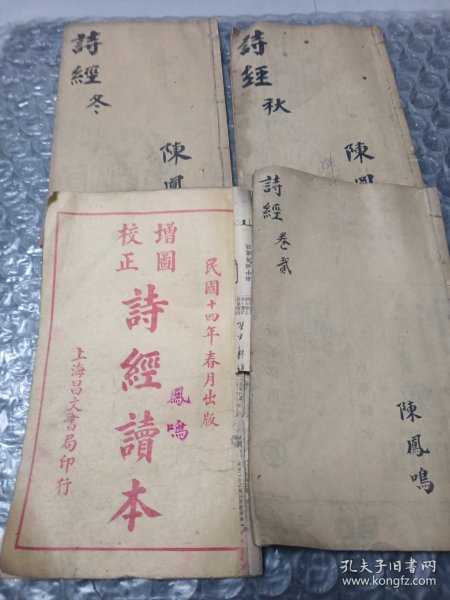 詩經
冬
陳鳳
詩經
秋
陳鳳
民國十四年春月出版
增圖
校正
詩經讀本
鳳鳴
上海昌文書局印行
詩經
卷貳
陳鳳鳴
孔夫子旧书网
www.kongfz.com